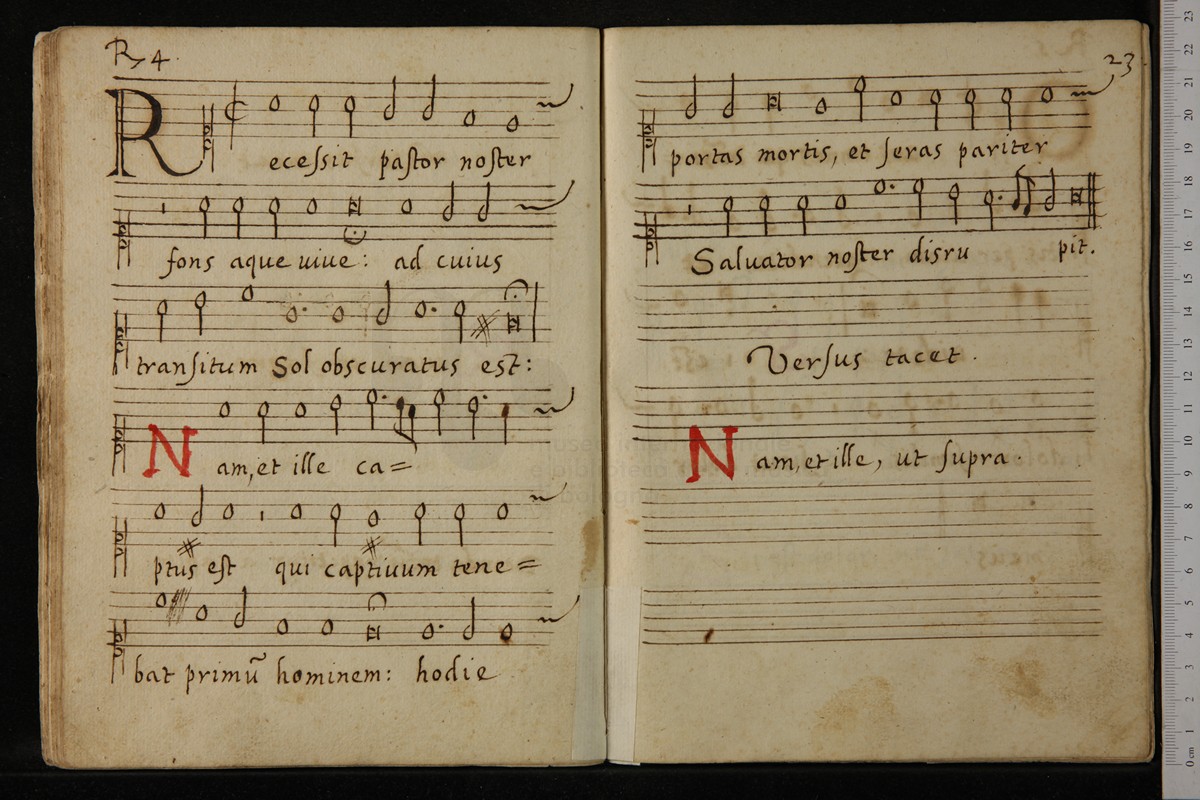 R 4.
Recessit pastor noster
fons aque uiue: ad cuius
transitum Sol obscuratus est:
Nam, et ille ca=
ptus est qui captiuum tene=
bat primũ hominem: hodie
23
portas mortis, et seras pariter
Saluator noster disru pit.
Versus tacet.
Nam, et ille, ut supra.